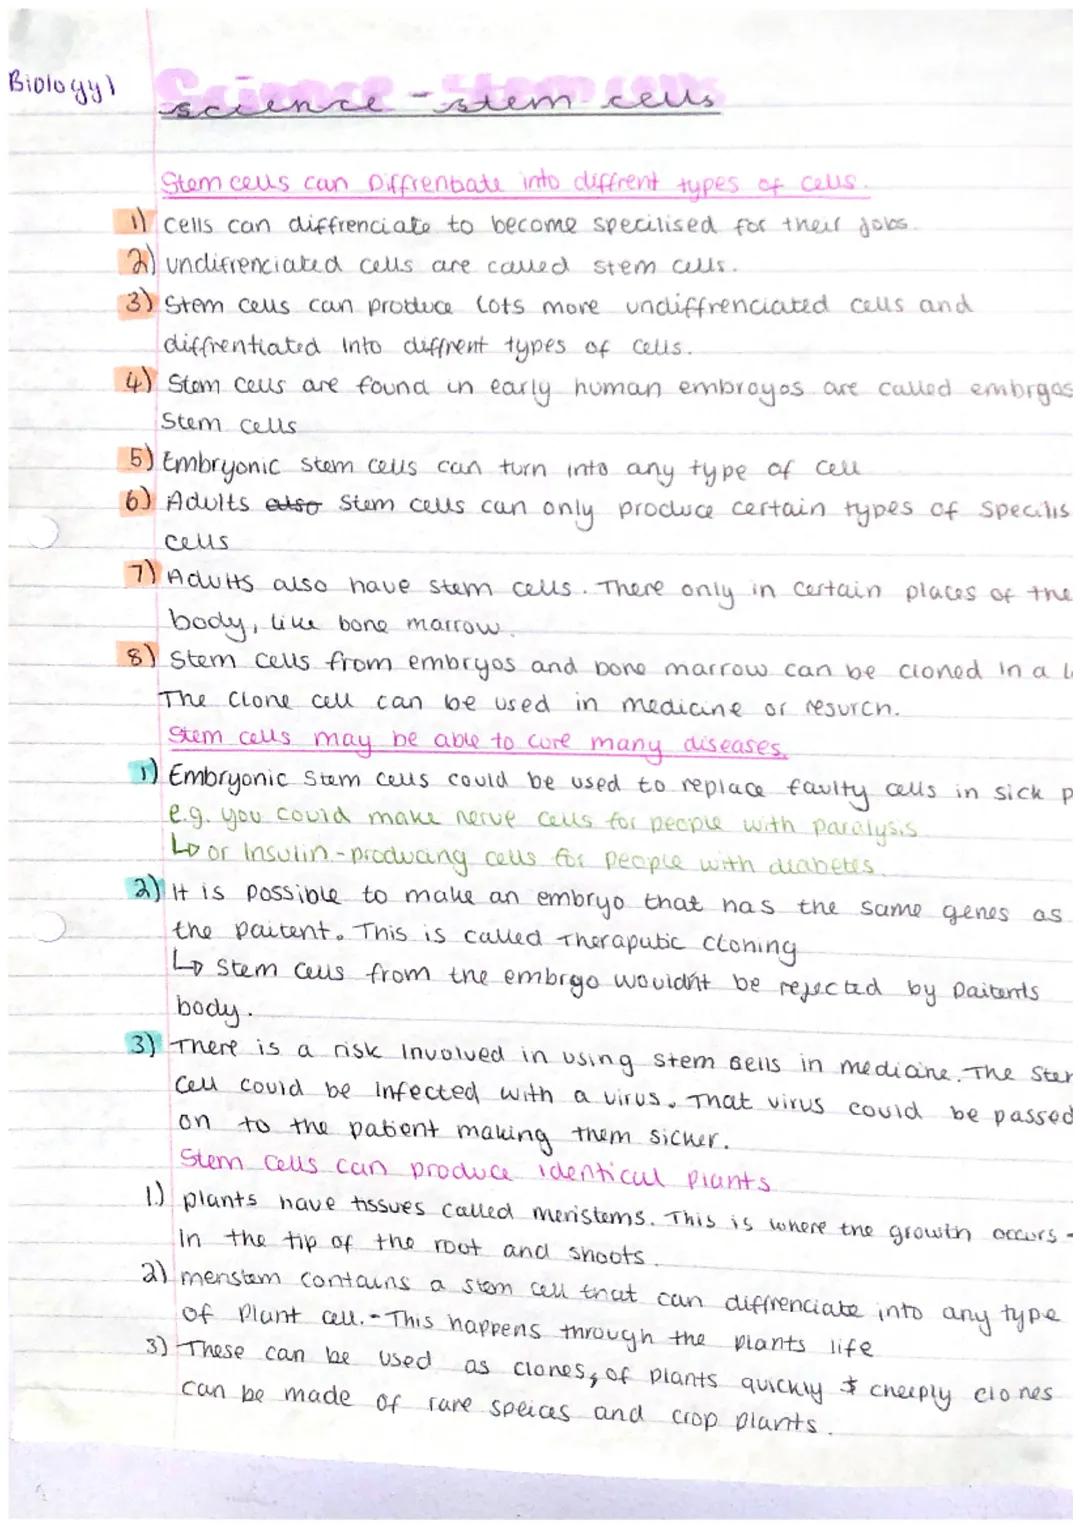 Biology)
Science - Stem cells
science - stem cells
Stem cells can Diffrentiate into diffrent types of cells.
1) cells can diffrenciate to become specilised for their jobs.
2) undifrenciated cells are called stem cells.
3) Stem cells can produce lots more undiffrenciated cells and
diffrentiated into diffrent types of cells.
4) Stem cells are found in early human embroyos are called embrgos
Stem cells
5) Embryonic stem cells can turn into any type of cell
6) Adults also Stem cells can only produce certain types of specilis
cells
7) Adults also have stem cells. There only in certain places of the
body, like bone marrow.
8) Stem cells from embryos and bone marrow can be cloned in a l
The clone cell can be used in medicine or resurch.
Stem cells may be able to cure many diseases.
1) Embryonic Stem cells could be used to replace faulty cells in sick p
e.g. you could make nerve cells for people with paralysis
↳ or Insulin-producing cells for people with diabetes.
2) It is possible to make an embryo that has the same genes as
the paitent. This is called Theraputic cloning
↳ Stem cells from the embrgo wouldn't be rejected by paitents
body.
3) There is a risk involved in using stem cells in medicine. The Ster
cell could be infected with a virus. That virus could be passed
on to the patient making them sicker.
Stem cells can produce identical plants
1.) plants have tissues called meristems. This is where the growth occurs -
in the tip of the root and shoots.
2) meristem contains a stem cell that can diffrenciate into any type
of plant cell. - This happens through the plants life
3) These can be used as clones, of plants quickly & cheeply clones
can be made of rare speices and crop plants.